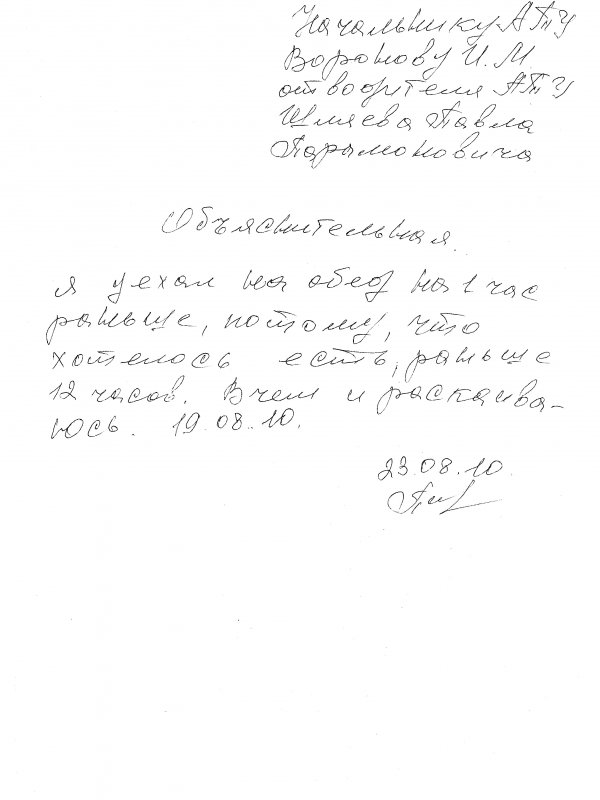 Начальнику АТЦ
Воронову И.М
от водителя АТЦ
Павла
Парамоновича
Объяснительная.
я уехал на обед на 1 час
раньше, потому, что
хотелось есть, раньше
12 часов. В чем и раскаива-
юсь. 19.08.10.
23.08.10.